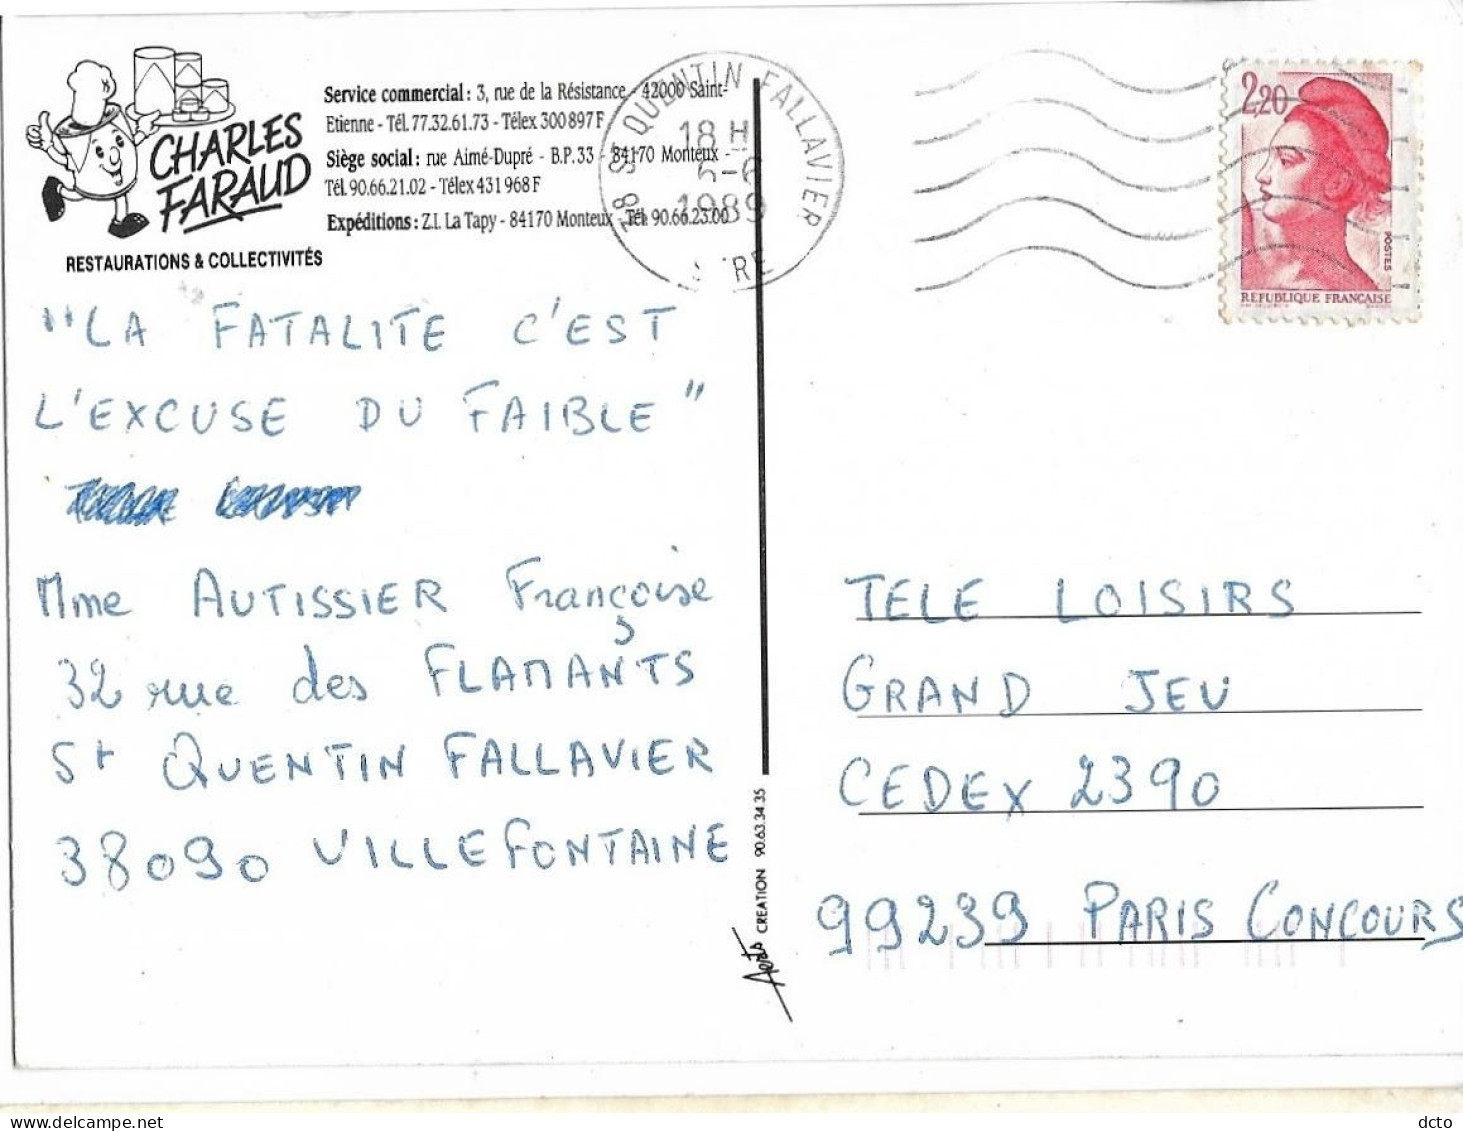 CHARLES
FARAUD
RESTAURATIONS & COLLECTIVITÉS
Service commercial : 3, rue de la Résistance - 42000 Saint-
Etienne - Tél. 77.32.61.73 - Télex 300 897 F
Siège social : rue Aimé-Dupré - B.P. 33 - 84170 Monteux -
Tél. 90.66.21.02 - Télex 431 968 F
Expéditions : Z.I. La Tapy - 84170 Monteux - Tél. 90.66.23.00
38 ST QUENTIN FALLAVIER
18 H
5-6
1989
2,20
POSTES
REPUBLIQUE FRANÇAISE
"LA FATALITE C'EST
L'EXCUSE DU FAIBLE"
Mme AUTISSIER Françoise
32 rue des FLAMANTS
St QUENTIN FALLAVIER
38090 VILLEFONTAINE
CREATION 90.63.34.35
TELE LOISIRS
GRAND JEU
CEDEX 2390
99239 PARIS CONCOURS
dcto